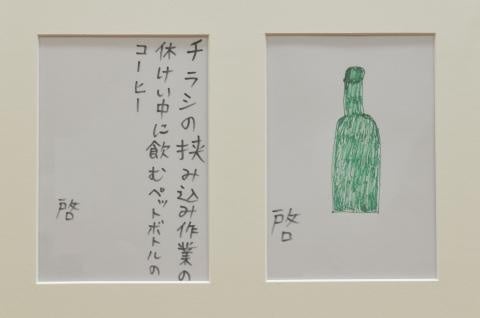 チラシの挟み込み作業の
休けい中に飲むペットボトルの
コーヒー
啓
啓